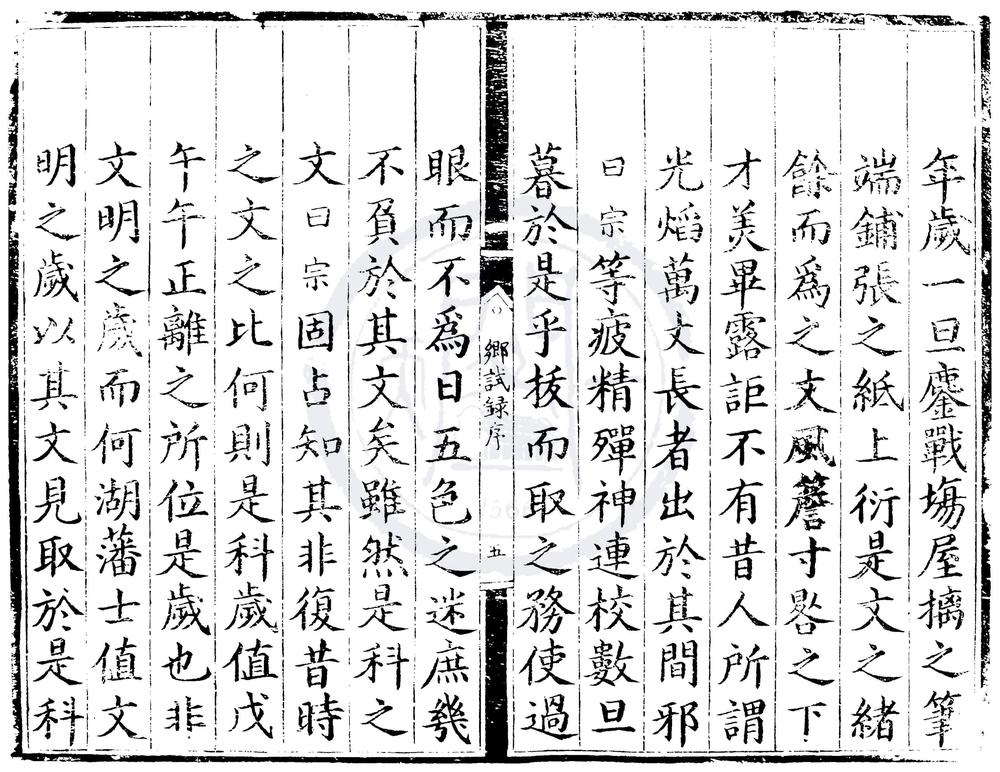 年歲一旦鏖戰塲屋摛之筆
端鋪張之紙上衍是文之緒
餘而爲之文風簷寸晷之下
才美畢露詎不有昔人所謂
光熖萬丈長者出於其間邪
曰宗等疲精殫神連校數旦
暮於是乎拔而取之務使過
鄉試録序
五
眼而不爲日五色之迷庶幾
不負於其文矣雖然是科之
文曰宗固占知其非復昔時
之文之比何則是科歲值戊
午午正離之所位是歲也非
文明之歲而何湖藩士值文
明之歲以其文見取於是科